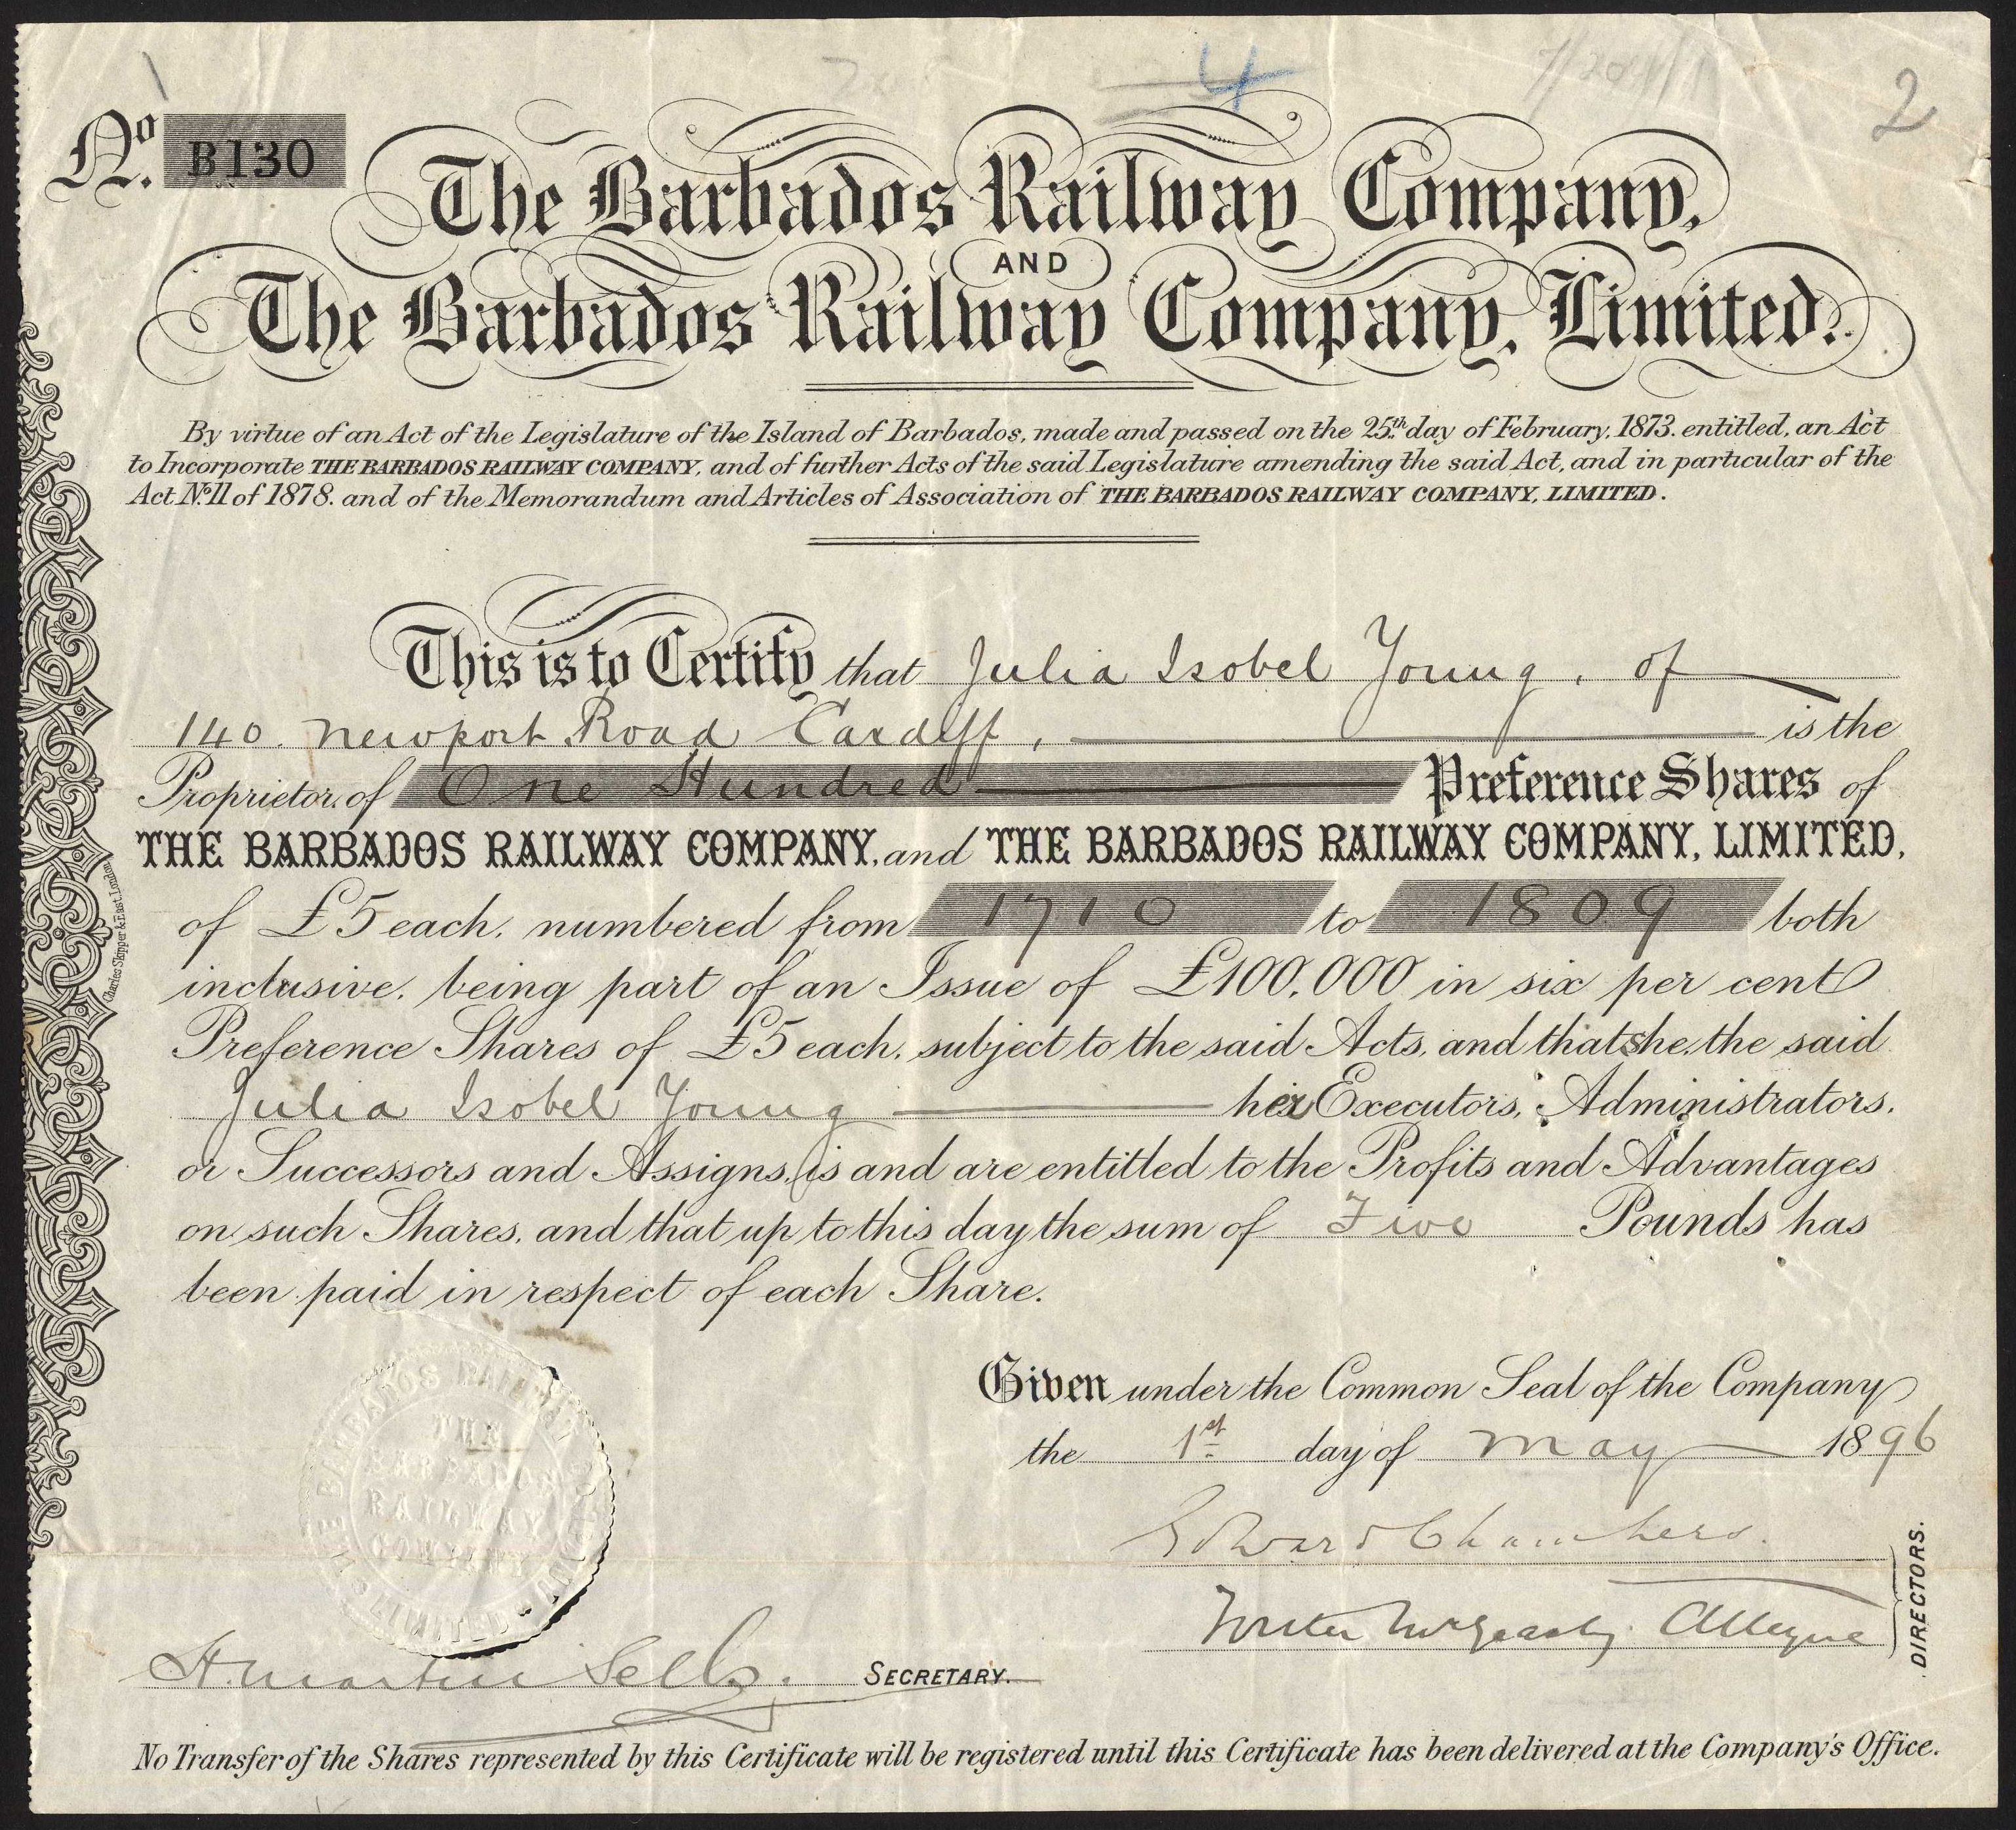 4
2
No. B130
The Barbados Railway Company,
AND
The Barbados Railway Company, Limited.
By virtue of an Act of the Legislature of the Island of Barbados, made and passed on the 25th day of February, 1873. entitled, an Act
to Incorporate THE BARBADOS RAILWAY COMPANY, and of further Acts of the said Legislature amending the said Act, and in particular of the
Act No. 11 of 1878. and of the Memorandum and Articles of Association of THE BARBADOS RAILWAY COMPANY, LIMITED.
This is to Certify that Julia Isobel Young, of
140. Newport Road Cardiff, is the
Proprietor, of One Hundred Preference Shares of
THE BARBADOS RAILWAY COMPANY, and THE BARBADOS RAILWAY COMPANY, LIMITED,
of £5 each, numbered from 1710 to 1809 both
inclusive, being part of an Issue of £100,000 in six per cent
Preference Shares of £5 each, subject to the said Acts, and that she, the said
Julia Isobel Young her Executors, Administrators,
or Successors and Assigns, is and are entitled to the Profits and Advantages
on such Shares, and that up to this day the sum of Five Pounds has
been paid in respect of each Share.
Charles Skipper & East, London
Given under the Common Seal of the Company
the 1st day of May 1896
THE BARBADOS RAILWAY COMPANY LIMITED
THE BARBADOS RAILWAY COMPANY
Edward Chambers.
Alleyne
DIRECTORS.
H. Martin Sells. SECRETARY.
No Transfer of the Shares represented by this Certificate will be registered until this Certificate has been delivered at the Company's Office.